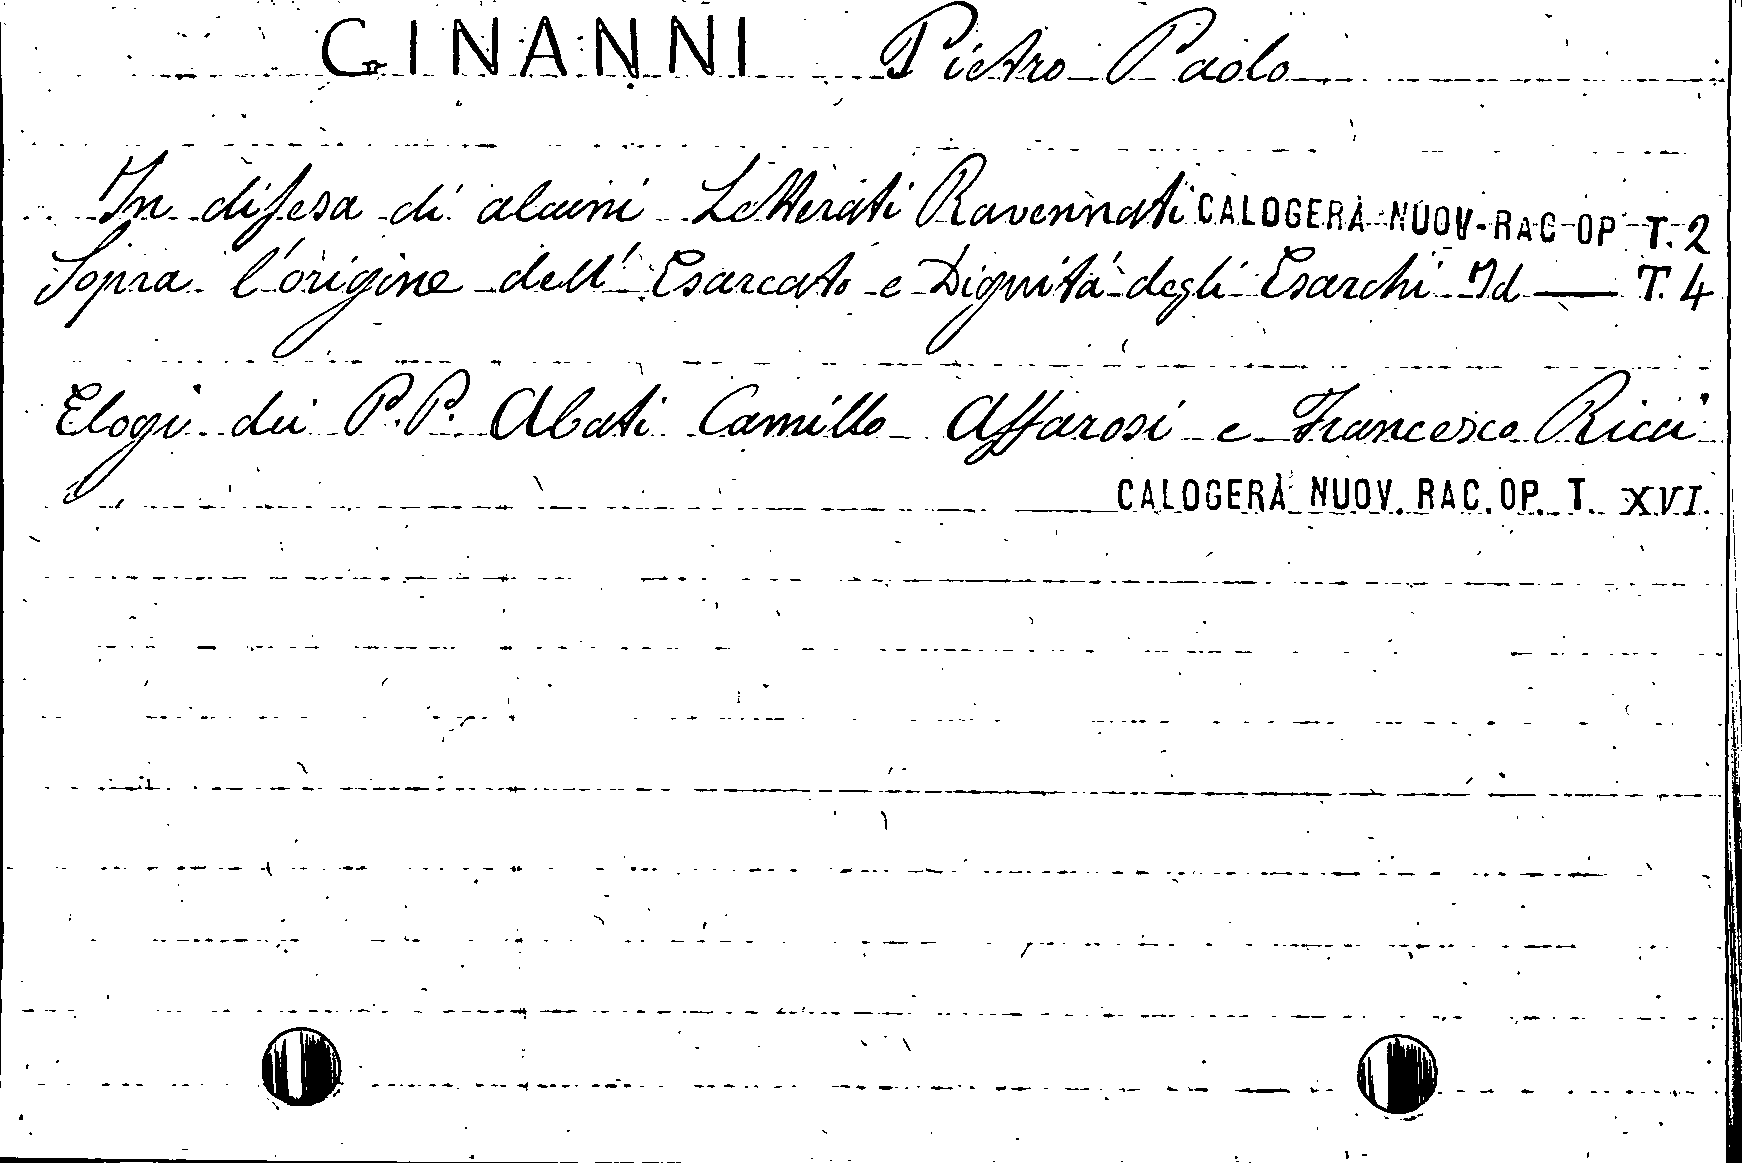 GINANNI Pietro Paolo
In difesa di alcuni Letterati Ravennati CALOGERÀ NUOV. RAC OP T. 2
Sopra l'origine dell' Esarcato e Dignità degli Esarchi Id — T. 4
Elogi dei P.P. Abati Camillo Affarosi e Francesco Ricci
CALOGERÀ NUOV. RAC. OP. T. XVI.